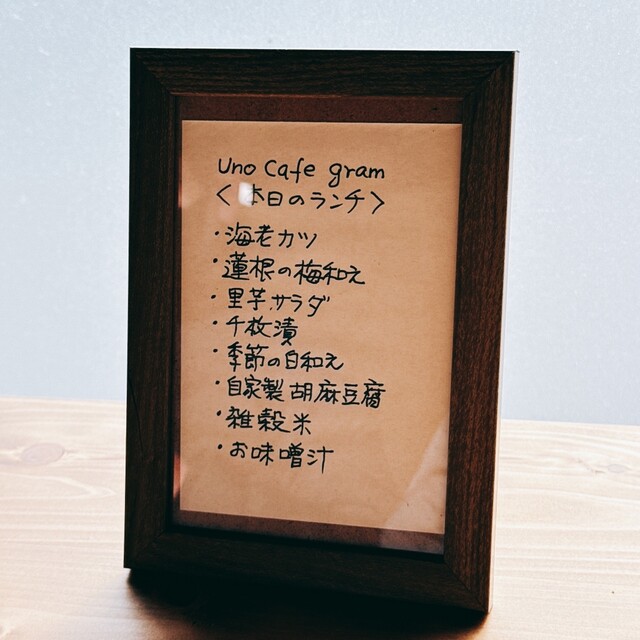 Uno Cafe gram
〈本日のランチ〉
・海老カツ
・蓮根の梅和え
・里芋サラダ
・千枚漬
・季節の白和え
・自家製胡麻豆腐
・雑穀米
・お味噌汁